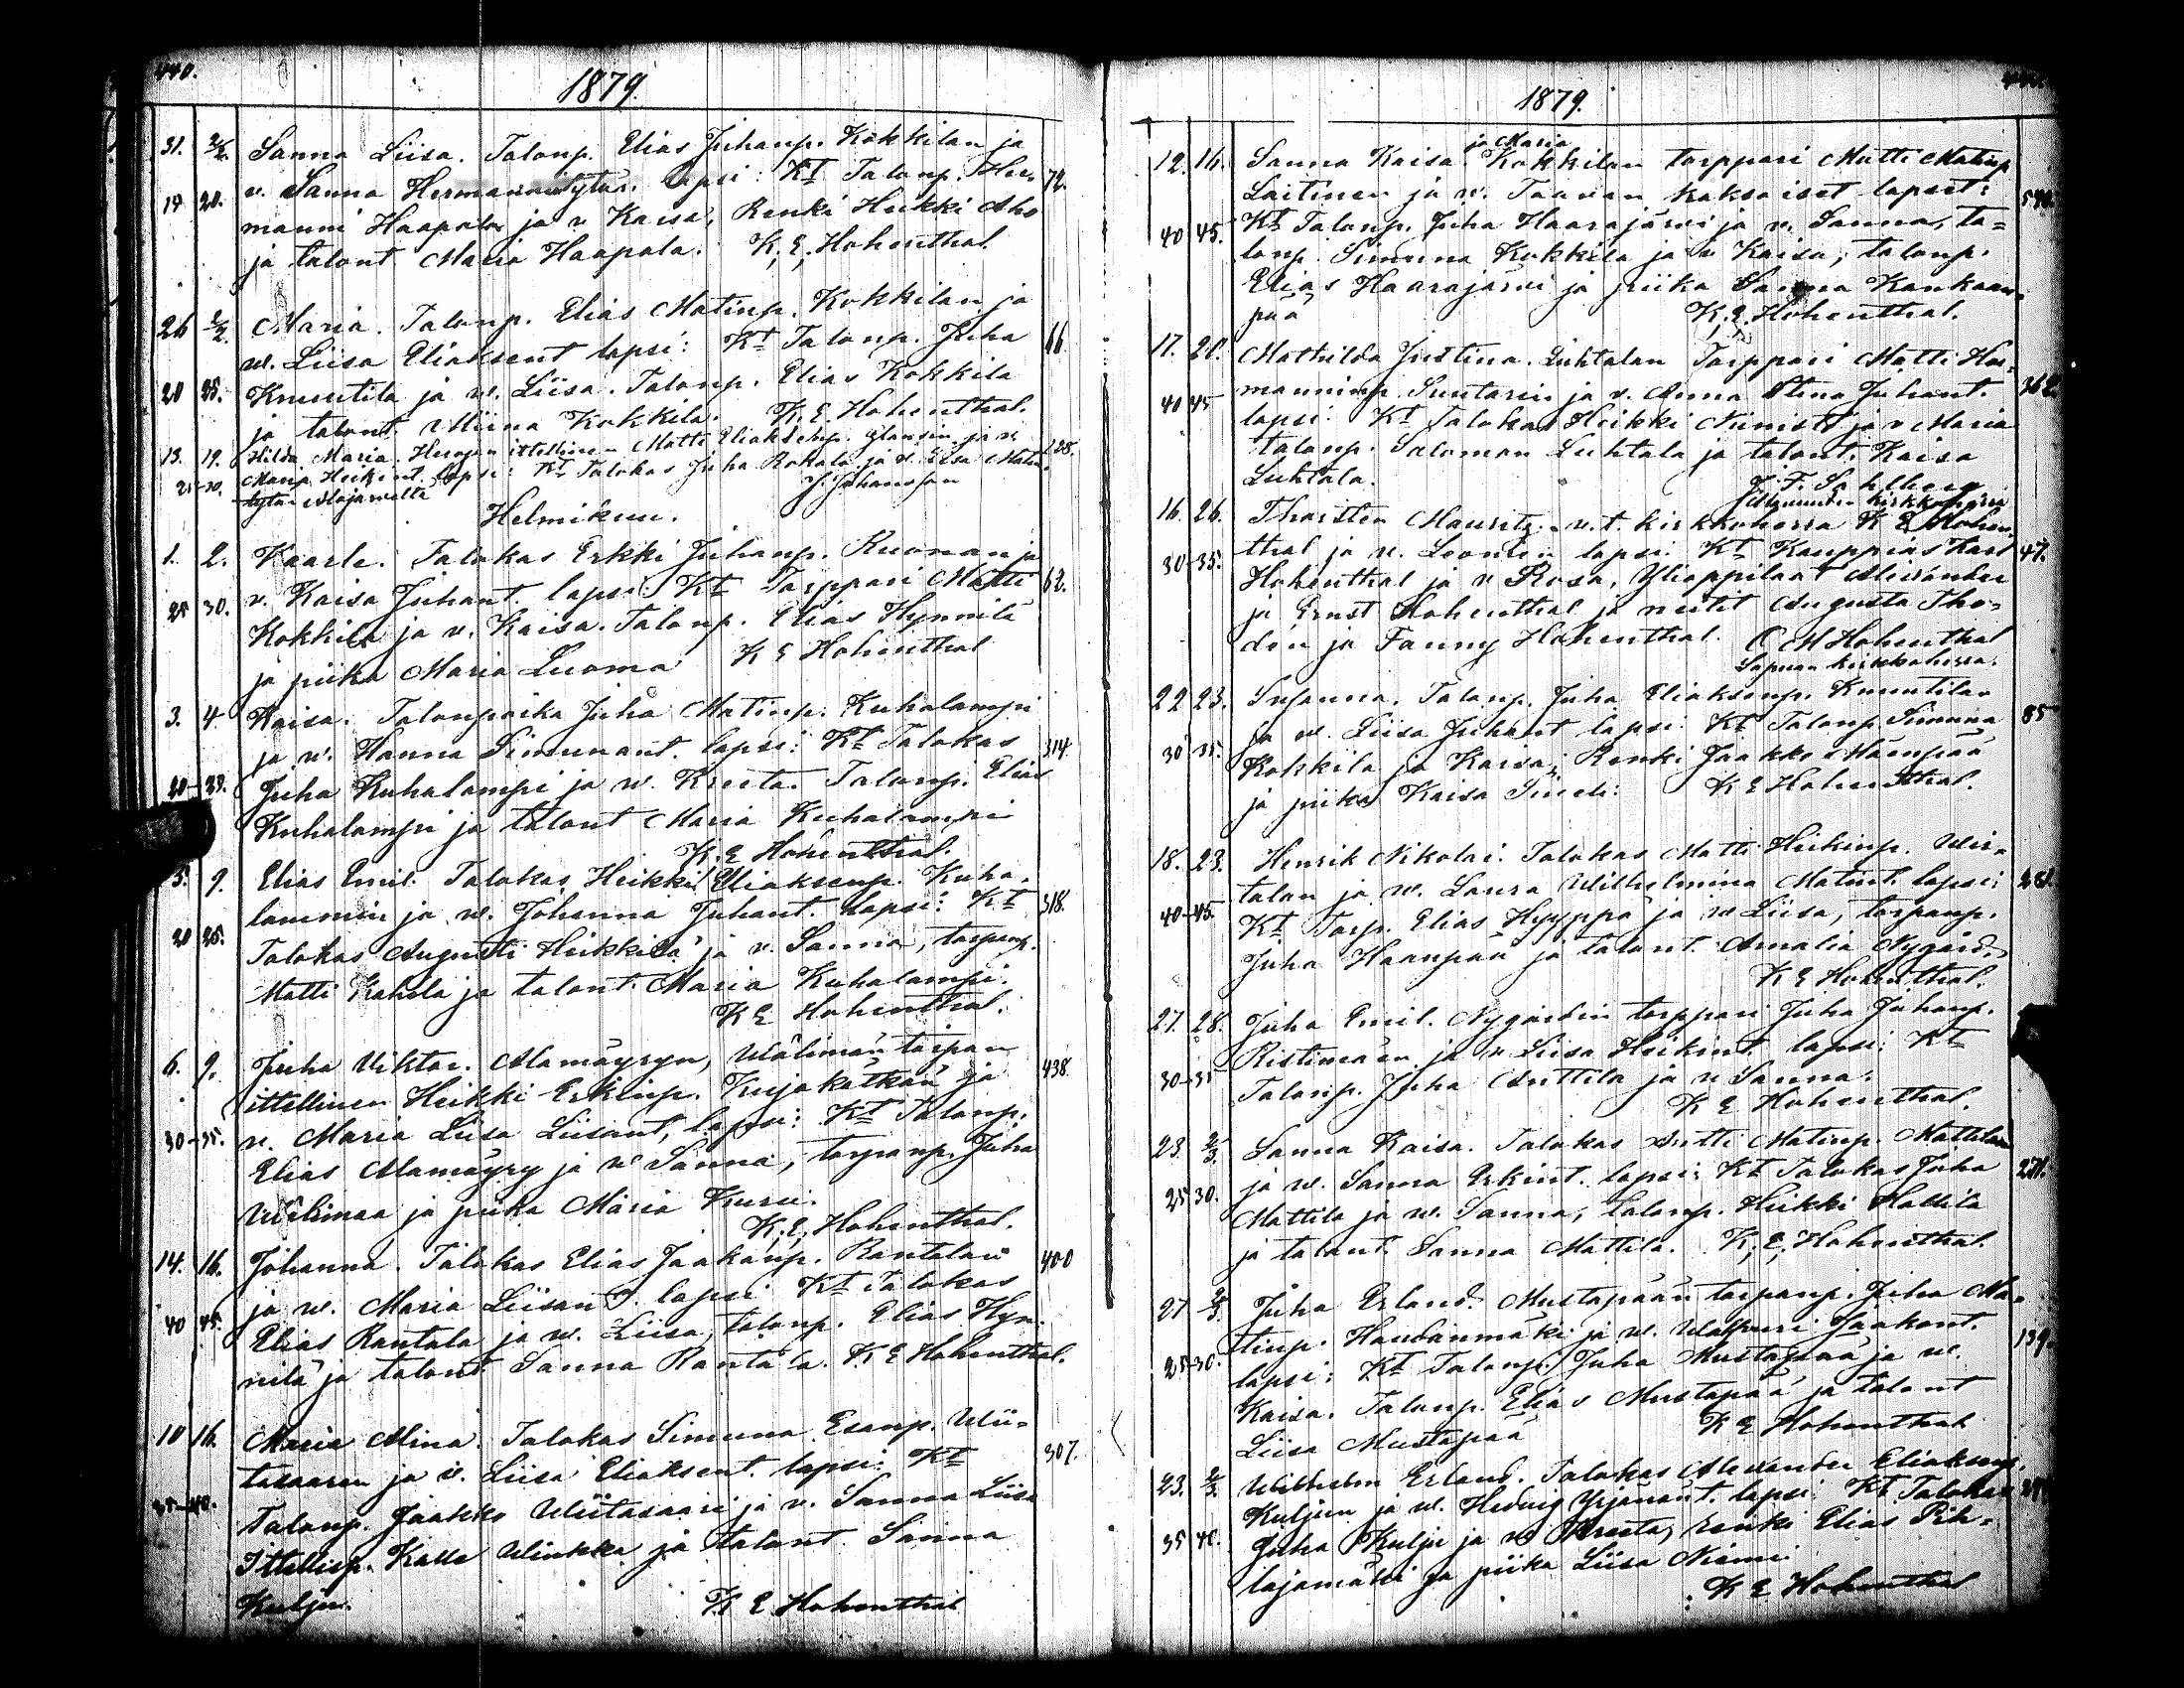 440.
1879.
31. 2/2. Sanna Liisa. Talonp. Elias Juhanp. Kokkilan ja
v. Sanna Hermannintytär. lapsi: Kt Talonp. Her- 72.
19 20. manni Haapala ja v Kaisa, Renki Heikki Aho
ja talont. Maria Haapala. K. E. Hohenthal
26 2/2. Maria. Talonp. Elias Matinp. Kokkilan ja
w. Liisa Eliaksent lapsi: Kt Talonp. Juha 66.
20 25. Knuutila ja w. Liisa. Talonp. Elias Kokkila
ja talont. Miina Kokkila. K. E. Hohenthal.
13. 19. Hilda Maria. ittellinen Matti Eliaksenp. ja v. 128.
25-30. Maria Heikint. lapsi: Kt Talokas Juha ja v. Liisa
J. Johansson
Helmikuu.
1. 2. Kaarle. Talokas Erkki Juhanp. Ruonan ja
v. Kaisa Juhant. lapsi: Kt Torppari Matti 62.
25 30. Kokkila ja v. Kaisa. Talonp. Elias Hynnilä
ja piika Maria Luoma K E Hohenthal
3. 4 Kaisa. Talonpoika Juha Matinp. Kuhalampi
ja w. Hanna Simunant. lapsi: Kt Talokas 314.
Juha Kuhalampi ja w. Kreeta. Talonp. Elias
Kuhalampi ja talont Maria Kuhalampi
K. E Hohenthal.
5. 9. Elias Emil. Talokas Heikki Eliaksenp. Kuha-
lammin ja w. Johanna Juhant. lapsi: Kt 318.
20 25. Talokas Augusti Heikkilä ja v. Sanna, torpanp.
Matti Kahila ja talont. Maria Kuhalampi.
K E Hohenthal.
6. 9. Juha Viktor. Alamäyryn, Wälimän torpan
ittellinen Heikki Erkinp. Kujakatkan ja 438.
30-35. v. Maria Liisa Liisant, lapsi: Kt Talonp.
Elias Alamäyry ja w Sanna, torpanp. Juha
Wälimaa ja piika Maria Kuru.
K. E. Hohenthal.
14. 16. Johanna. Talokas Elias Jaakonp. Rantalan 400
ja w. Maria Liisant. lapsi Kt Talokas
40 45. Elias Rantala ja w. Liisa, talonp. Elias Hyn-
nilä ja talont. Sanna Rantala. K E Hohenthal.
10 16. Maria Alina. Talokas Simuna Esanp. Wii-
tasaaren ja v. Liisa Eliaksent. lapsi: Kt 307.
35-40. Talonp. Jaakko Wiitasaari ja v. Sanna Liisa
Ittellisp. Kalle Winkka ja talont. Sanna
Kulju. K E Hohenthal
1879.
ja Maria
12. 16. Sanna Kaisa. Kokkilan torppari Matti Matinp
Laitinen ja w. Taavan kaksoiset lapset:
40 45. Kt Talonp. Juha Haarajärvi ja w. Sanna, ta-
lonp. Simuna Kokkila ja w Kaisa, talonp.
Elias Haarajärvi ja piika Sanna Kankaan-
pää K. E. Hohenthal.
17. 21. Mathilda Justina. Luhtalan Torppari Matti Her-
manninp. Suntarin ja v. Anna Stina Juhant. 362.
40 45 lapsi: Kt Talokas Heikki Niinistö ja v Maria
talonp. Salomon Luhtala ja talont. Kaisa
Luhtala. J. F. Sahlberg
kirkkoherra
16. 26. Thorsten Mauritz. v. t. kirkkoherra K E Hohen-
thal ja w. Leontin lapsi. Kt Kauppias Karl 47.
30-35. Hohenthal ja v Rosa, Ylioppilaat Alexander
ja Ernst Hohenthal ja neitit Augusta Tho-
den ja Fanny Hohenthal. O M Hohenthal
Lapuan kirkkoherra.
22 23. Susanna. Talonp. Juha Eliaksenp. Knuutilan
ja w. Liisa Juhant lapsi: Kt Talonp. Simuna 85
30 35. Kokkila ja Kaisa, Renki Jaakko Mäenpää
ja piika Kaisa K E Hohenthal.
18. 23. Henrik Nikolai. Talokas Matti Heikinp. Wir-
talan ja w. Laura Wilhelmina Matint. lapsi:
40-45. Kt Torp. Elias Hyyppä ja w Liisa, torpanp.
Juha Haanpää ja talont. Amalia Nygård.
K E Hohenthal.
27. 28. Juha Emil. Nygårdin torppari Juha Juhanp.
Ristimäen ja w Liisa Heikint. lapsi: Kt
30-35 Talonp. Juha Anttila ja v Sanna.
K E Hohenthal.
23. 2/3. Sanna Kaisa. Talokas Antti Matinp. Mattilan
ja w. Sanna Erkint. lapsi: Kt Talokas Juha 271.
25 30. Mattila ja w. Sanna, talonp. Heikki Hallila
ja talont. Sanna Mattila. K. E. Hohenthal.
27 2/3. Juha Erland. Mustapään torpanp. Juha Ma-
tinp. Haudanmäki ja w. Walpuri Jaakont. 139.
25-30. lapsi: Kt Talonp. Juha Mustapää ja w.
Kaisa. Talonp. Elias Mustapää ja talont
Liisa Mustapää K E Hohenthal
23. 2/3. Wilhelm Erland. Talokas Alexander Eliaksenp.
Kuljun ja w. Hedvig Yrjänänt. lapsi: Kt. Talokas
35 40. Juha Kulju ja w Kreeta, renki Elias Pih-
lajamäki ja piika Liisa Niemi.
K E Hohenthal